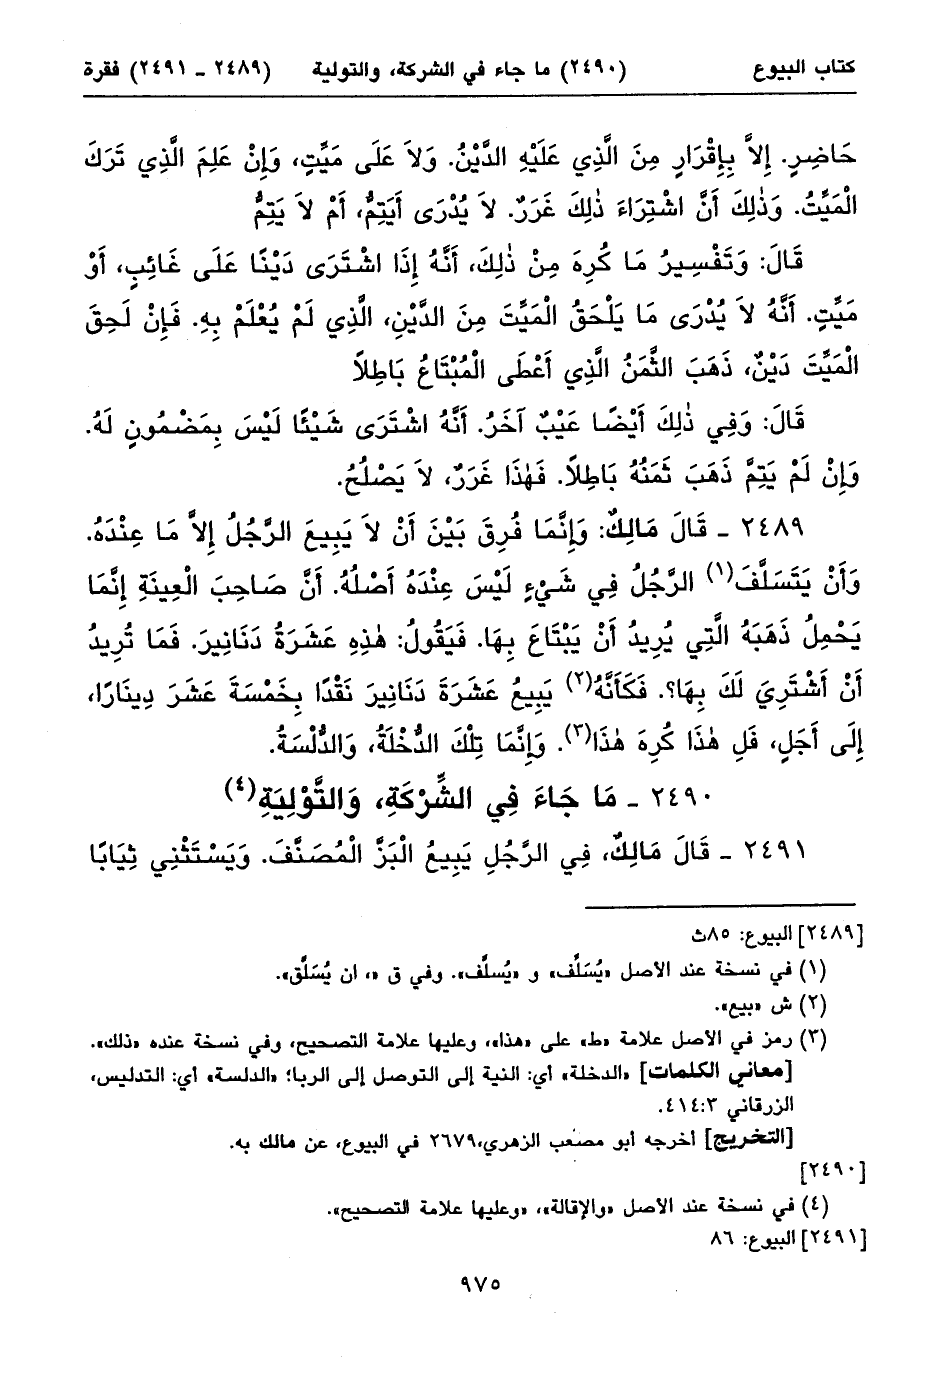 كتاب البيوع (٢٤٩٠) ما جاء في الشركة، والتولية (٢٤٨٩ ـ ٢٤٩١) فقرة
حَاضِرٍ. إِلاَّ بِإِقْرَارٍ مِنَ الَّذِي عَلَيْهِ الدَّيْنُ. وَلاَ عَلَى مَيِّتٍ، وَإِنْ عَلِمَ الَّذِي تَرَكَ
الْمَيِّتُ. وَذٰلِكَ أَنَّ اشْتِرَاءَ ذٰلِكَ غَرَرٌ. لاَ يُدْرَى أَيَتِمُّ، أَمْ لاَ يَتِمُّ
قَالَ: وَتَفْسِيرُ مَا كُرِهَ مِنْ ذٰلِكَ، أَنَّهُ إِذَا اشْتَرَى دَيْنًا عَلَى غَائِبٍ، أَوْ
مَيِّتٍ. أَنَّهُ لاَ يُدْرَى مَا يَلْحَقُ الْمَيِّتَ مِنَ الدَّيْنِ، الَّذِي لَمْ يُعْلَمْ بِهِ. فَإِنْ لَحِقَ
الْمَيِّتَ دَيْنٌ، ذَهَبَ الثَّمَنُ الَّذِي أَعْطَى الْمُبْتَاعُ بَاطِلاً
قَالَ: وَفِي ذٰلِكَ أَيْضًا عَيْبٌ آخَرُ. أَنَّهُ اشْتَرَى شَيْئًا لَيْسَ بِمَضْمُونٍ لَهُ.
وَإِنْ لَمْ يَتِمَّ ذَهَبَ ثَمَنُهُ بَاطِلاً. فَهٰذَا غَرَرٌ، لاَ يَصْلُحُ.
٢٤٨٩ ـ قَالَ مَالِكٌ: وَإِنَّمَا فُرِقَ بَيْنَ أَنْ لاَ يَبِيعَ الرَّجُلُ إِلاَّ مَا عِنْدَهُ.
وَأَنْ يَتَسَلَّفَ(١) الرَّجُلُ فِي شَيْءٍ لَيْسَ عِنْدَهُ أَصْلُهُ. أَنَّ صَاحِبَ الْعِينَةِ إِنَّمَا
يَحْمِلُ ذَهَبَهُ الَّتِي يُرِيدُ أَنْ يَبْتَاعَ بِهَا. فَيَقُولُ: هٰذِهِ عَشَرَةُ دَنَانِيرَ. فَمَا تُرِيدُ
أَنْ أَشْتَرِيَ لَكَ بِهَا؟. فَكَأَنَّهُ(٢) يَبِيعُ عَشَرَةَ دَنَانِيرَ نَقْدًا بِخَمْسَةَ عَشَرَ دِينَارًا،
إِلَى أَجَلٍ، فَلِ هٰذَا كُرِهَ هٰذَا(٣). وَإِنَّمَا تِلْكَ الدُّخْلَةُ، وَالدُّلْسَةُ.
٢٤٩٠ ـ مَا جَاءَ فِي الشِّرْكَةِ، وَالتَّوْلِيَةِ(٤)
٢٤٩١ ـ قَالَ مَالِكٌ، فِي الرَّجُلِ يَبِيعُ الْبَزَّ الْمُصَنَّفَ. وَيَسْتَثْنِي ثِيَابًا
[٢٤٨٩] البيوع: ٨٥ث
(١) في نسخة عند الأصل «يُسَلِّف» و «يُسلَّف». وفي ق «، ان يُسَلَّق».
(٢) ش «بيع».
(٣) رمز في الأصل علامة «ط» على «هذا»، وعليها علامة التصحيح، وفي نسخة عنده «ذلك».
[معاني الكلمات] «الدخلة» أي: النية إلى التوصل إلى الربا؛ «الدلسة» أي: التدليس،
الزرقاني ٤١٤:٣.
[التخريج] أخرجه أبو مصعب الزهري،٢٦٧٩ في البيوع، عن مالك به.
[٢٤٩٠]
(٤) في نسخة عند الأصل «والإقالة»، «وعليها علامة التصحيح».
[٢٤٩١] البيوع: ٨٦
٩٧٥